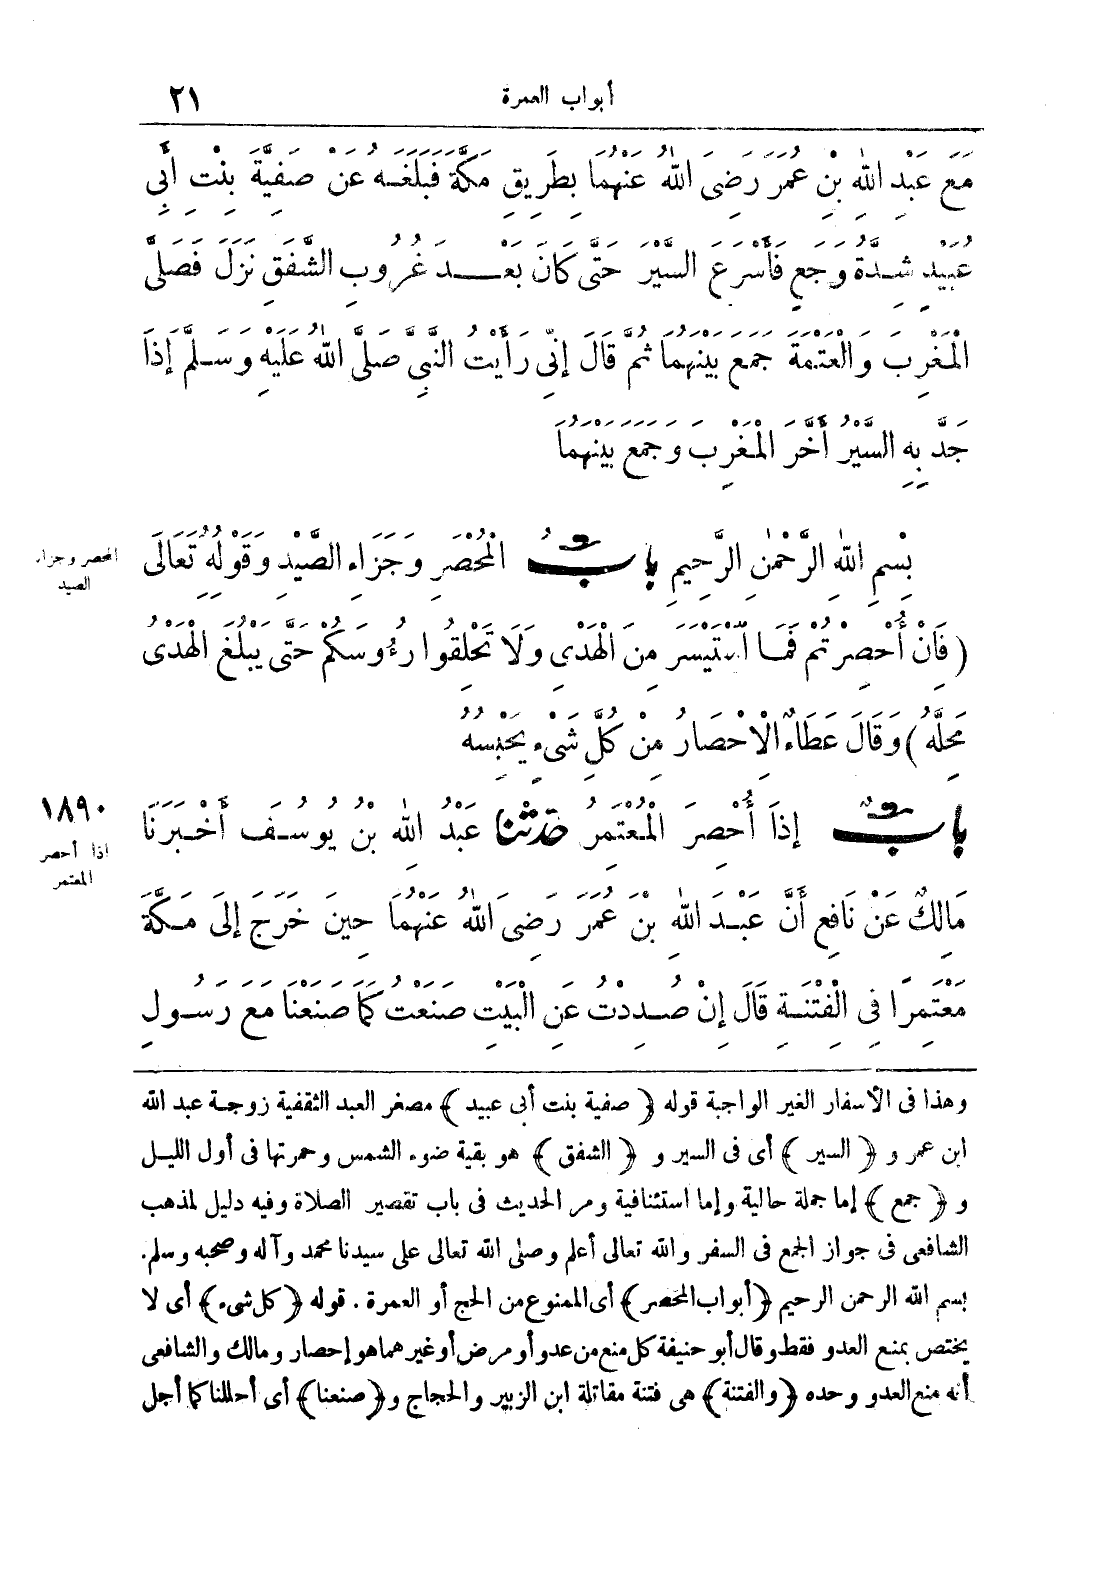 أبواب العمرة ٢١
مَعَ عَبْدِ اللهِ بْنِ عُمَرَ رَضِىَ اللهُ عَنْهُمَا بِطَرِيقِ مَكَّةَ فَبَلَغَهُ عَنْ صَفِيَّةَ بِنْتِ أَبِى
عُبَيْدٍ شِدَّةُ وَجَعٍ فَأَسْرَعَ السَّيْرَ حَتَّى كَانَ بَعْدَ غُرُوبِ الشَّفَقِ نَزَلَ فَصَلَّى
الْمَغْرِبَ وَالْعَتَمَةَ جَمَعَ بَيْنَهُمَا ثُمَّ قَالَ إِنِّى رَأَيْتُ النَّبِىَّ صَلَّى اللهُ عَلَيْهِ وَسَلَّمَ إِذَا
جَدَّ بِهِ السَّيْرُ أَخَّرَ الْمَغْرِبَ وَجَمَعَ بَيْنَهُمَا
بِسْمِ اللهِ الرَّحْمٰنِ الرَّحِيمِ بَابُ الْمُحْصَرِ وَجَزَاءِ الصَّيْدِ وَقَوْلُهُ تَعَالَى
المحصر وجزاء
الصيد
( فَانْ أُحْصِرْتُمْ فَمَا اسْتَيْسَرَ مِنَ الْهَدْىِ وَلَا تَحْلِقُوا رُءُوسَكُمْ حَتَّى يَبْلُغَ الْهَدْىُ
مَحِلَّهُ ) وَقَالَ عَطَاءٌ الْاحْصَارُ مِنْ كُلِّ شَىْءٍ يَحْبِسُهُ
بَابٌ إِذَا أُحْصِرَ الْمُعْتَمِرُ حَدَّثَنَا عَبْدُ اللهِ بْنُ يُوسُفَ أَخْبَرَنَا
١٨٩٠
اذا أحصر
المعتمر
مَالِكٌ عَنْ نَافِعٍ أَنَّ عَبْدَ اللهِ بْنَ عُمَرَ رَضِىَ اللهُ عَنْهُمَا حِينَ خَرَجَ إِلَى مَكَّةَ
مُعْتَمِرًا فِى الْفِتْنَةِ قَالَ إِنْ صُدِدْتُ عَنِ الْبَيْتِ صَنَعْتُ كَمَا صَنَعْنَا مَعَ رَسُولِ
وهذا فى الأسفار الغير الواجبة قوله ﴿ صفية بنت أبى عبيد ﴾ مصغر العبد الثقفية زوجة عبد الله
ابن عمر و ﴿ السير ﴾ أى فى السير و ﴿ الشفق ﴾ هو بقية ضوء الشمس وحمرتها فى أول الليل
و ﴿ جمع ﴾ إما جملة حالية وإما استئنافية ومر الحديث فى باب تقصير الصلاة وفيه دليل لمذهب
الشافعى فى جواز الجمع فى السفر والله تعالى أعلم وصلى الله تعالى على سيدنا محمد وآله وصحبه وسلم.
بسم الله الرحمن الرحيم ﴿أبواب المحصر﴾ أى الممنوع من الحج أو العمرة . قوله ﴿كل شىء﴾ أى لا
يختص بمنع العدو فقط وقال أبو حنيفة كل منع من عدو أو مرض أو غيرهما هو إحصار ومالك والشافعى
أنه منع العدو وحده ﴿والفتنة﴾ هى فتنة مقاتلة ابن الزبير والحجاج و﴿صنعنا﴾ أى أحللنا كما أحل